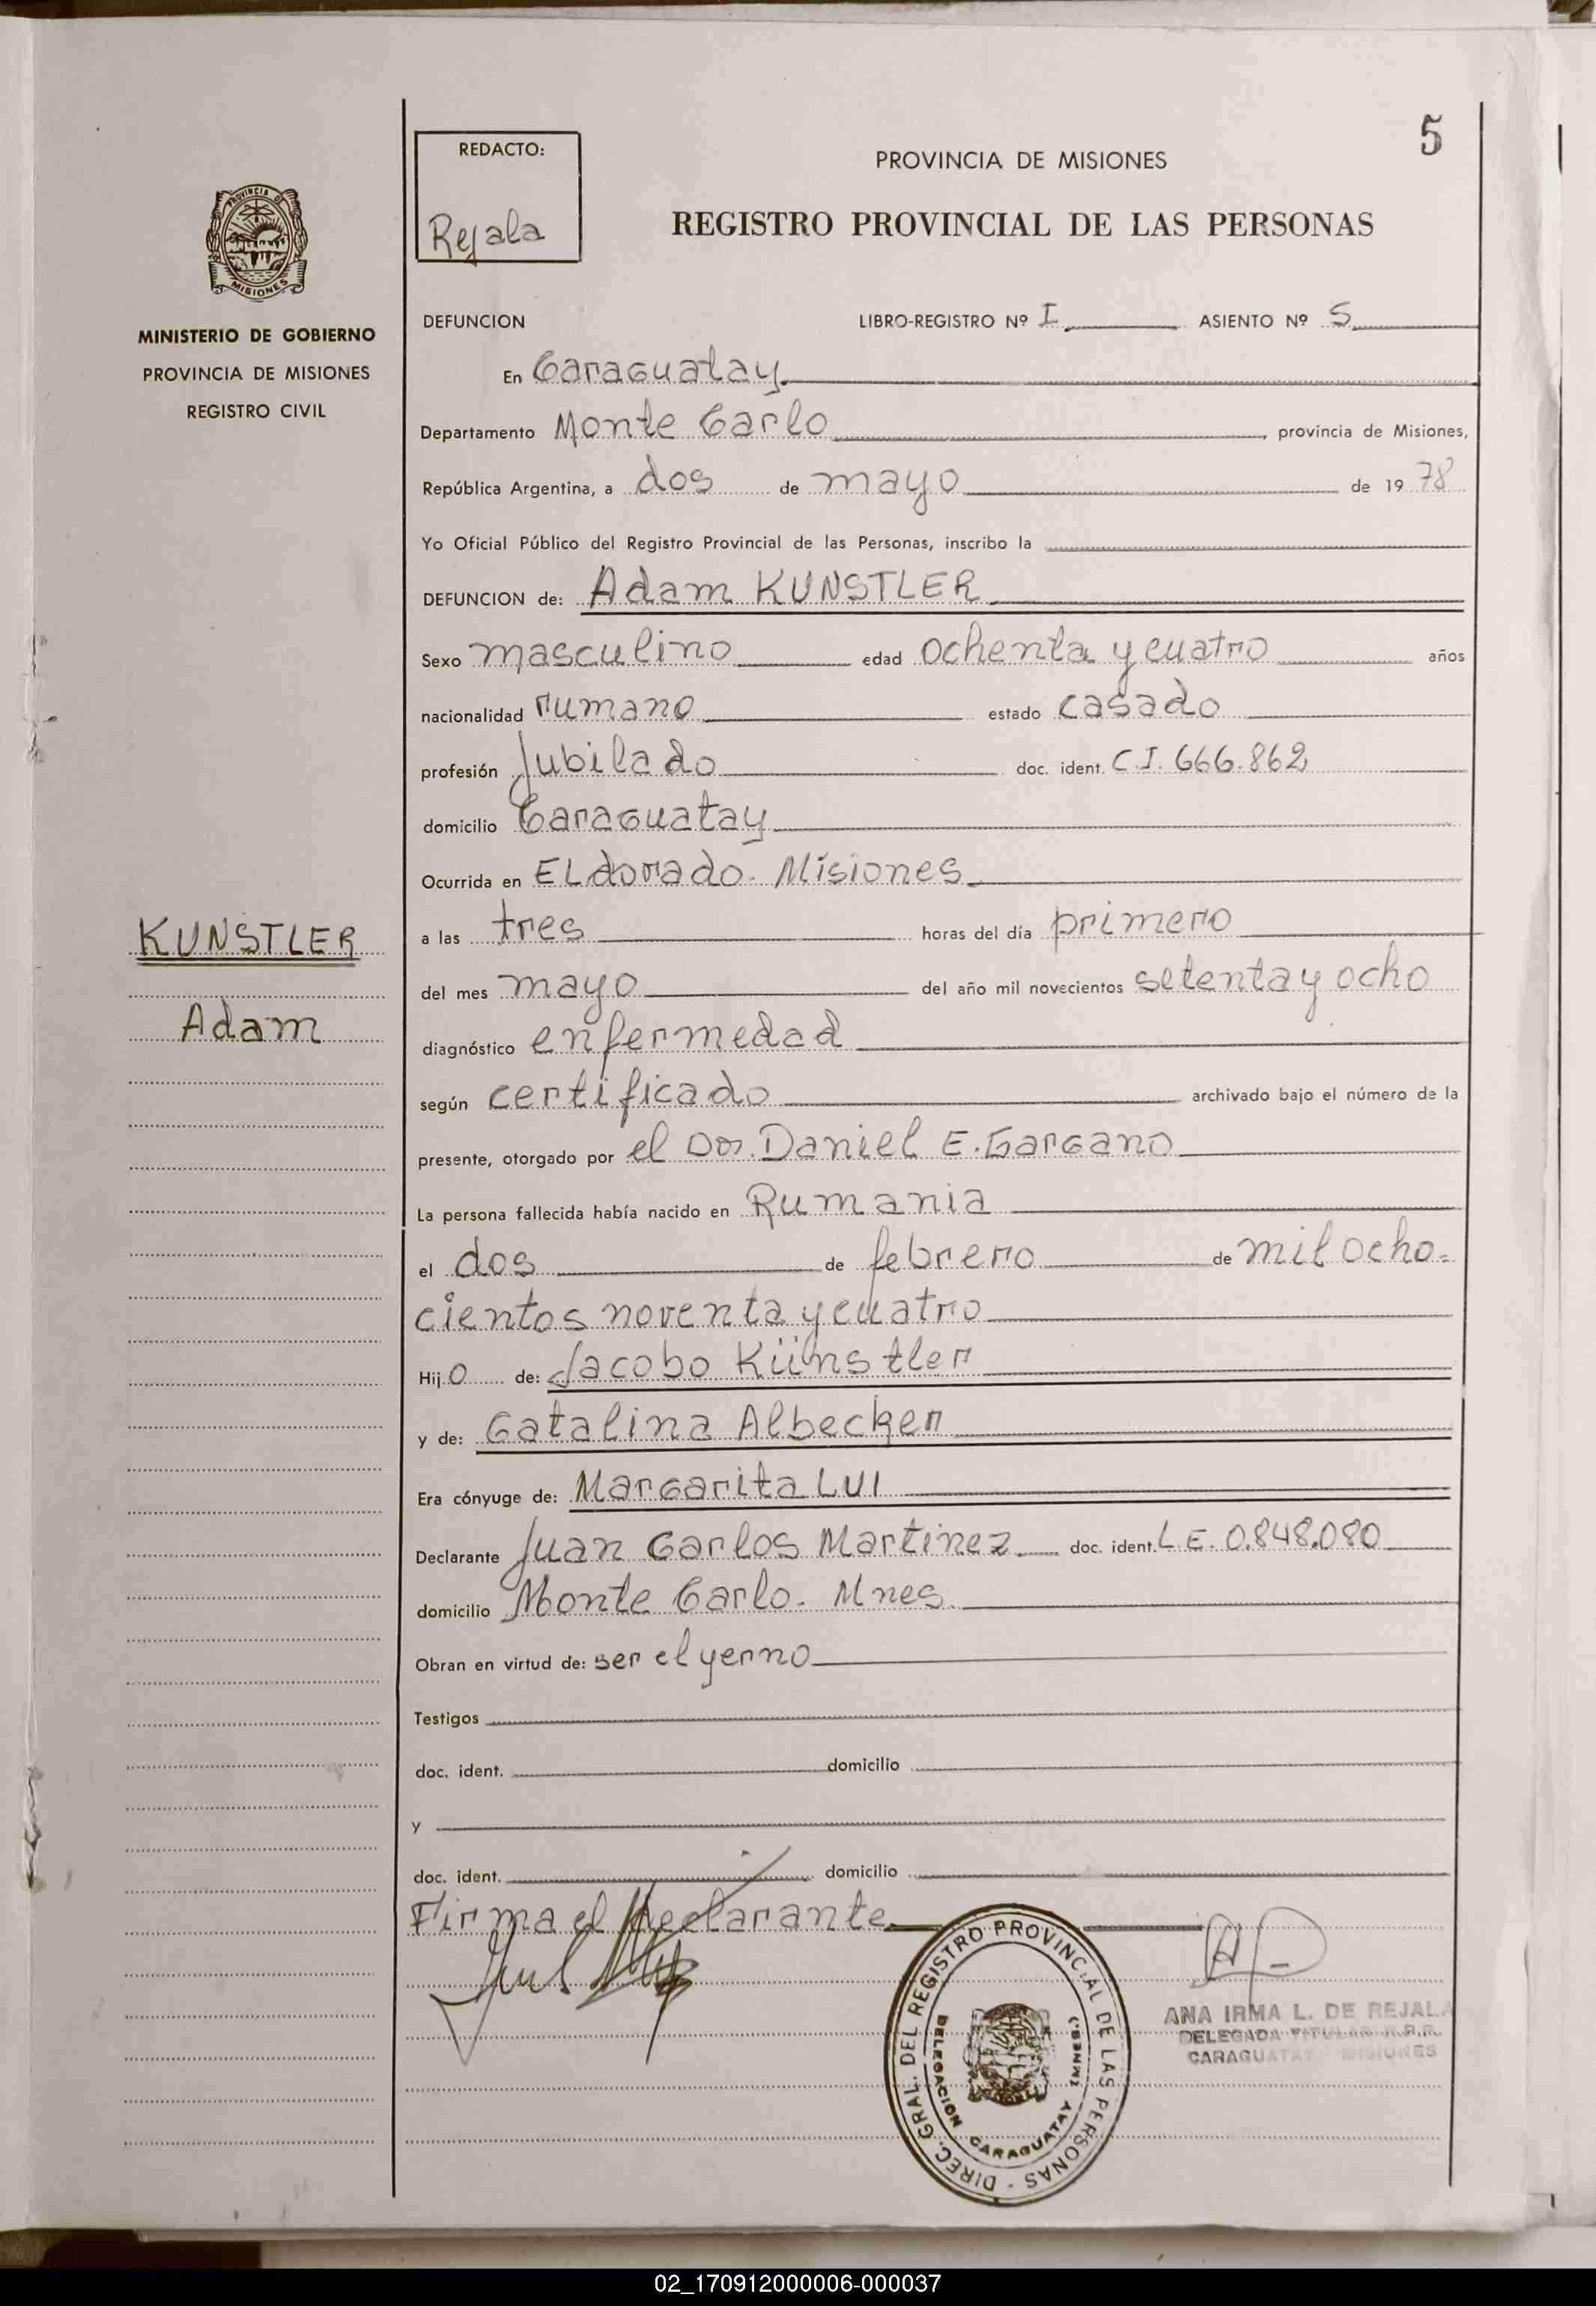 5
REDACTO:
Rejala
PROVINCIA DE MISIONES
REGISTRO PROVINCIAL DE LAS PERSONAS
PROVINCIA DE
MISIONES
MINISTERIO DE GOBIERNO
PROVINCIA DE MISIONES
REGISTRO CIVIL
KUNSTLER
Adam
DEFUNCION LIBRO-REGISTRO Nº I ASIENTO Nº 5
En Caraguatay
Departamento Monte Carlo, provincia de Misiones,
República Argentina, a dos de mayo de 1978
Yo Oficial Público del Registro Provincial de las Personas, inscribo la
DEFUNCION de: Adam KUNSTLER
Sexo masculino edad ochenta y cuatro años
nacionalidad rumano estado casado
profesión Jubilado doc. ident. C.I. 666.862
domicilio Caraguatay
Ocurrida en ELdorado. Misiones
a las tres horas del día primero
del mes mayo del año mil novecientos setenta y ocho
diagnóstico enfermedad
según certificado archivado bajo el número de la
presente, otorgado por el Dor. Daniel E. Gargano
La persona fallecida había nacido en Rumania
el dos de febrero de mil ocho=
cientos noventa y cuatro
Hijo de: Jacobo Künstler
y de: Catalina Albecker
Era cónyuge de: Margarita LUI
Declarante Juan Carlos Martinez doc. ident. L.E. 0.848.080
domicilio Monte Carlo. Mnes.
Obran en virtud de: ser el yerno
Testigos
doc. ident. domicilio
y
doc. ident. domicilio
Firma el declarante
DIREC. GRAL. DEL REGISTRO PROVINCIAL DE LAS PERSONAS -
DELEGACION CARAGUATAY (MNES.)
ANA IRMA L. DE REJALA
DELEGADA TITULAR R.P.P.
CARAGUATAY - MISIONES
02_170912000006-000037